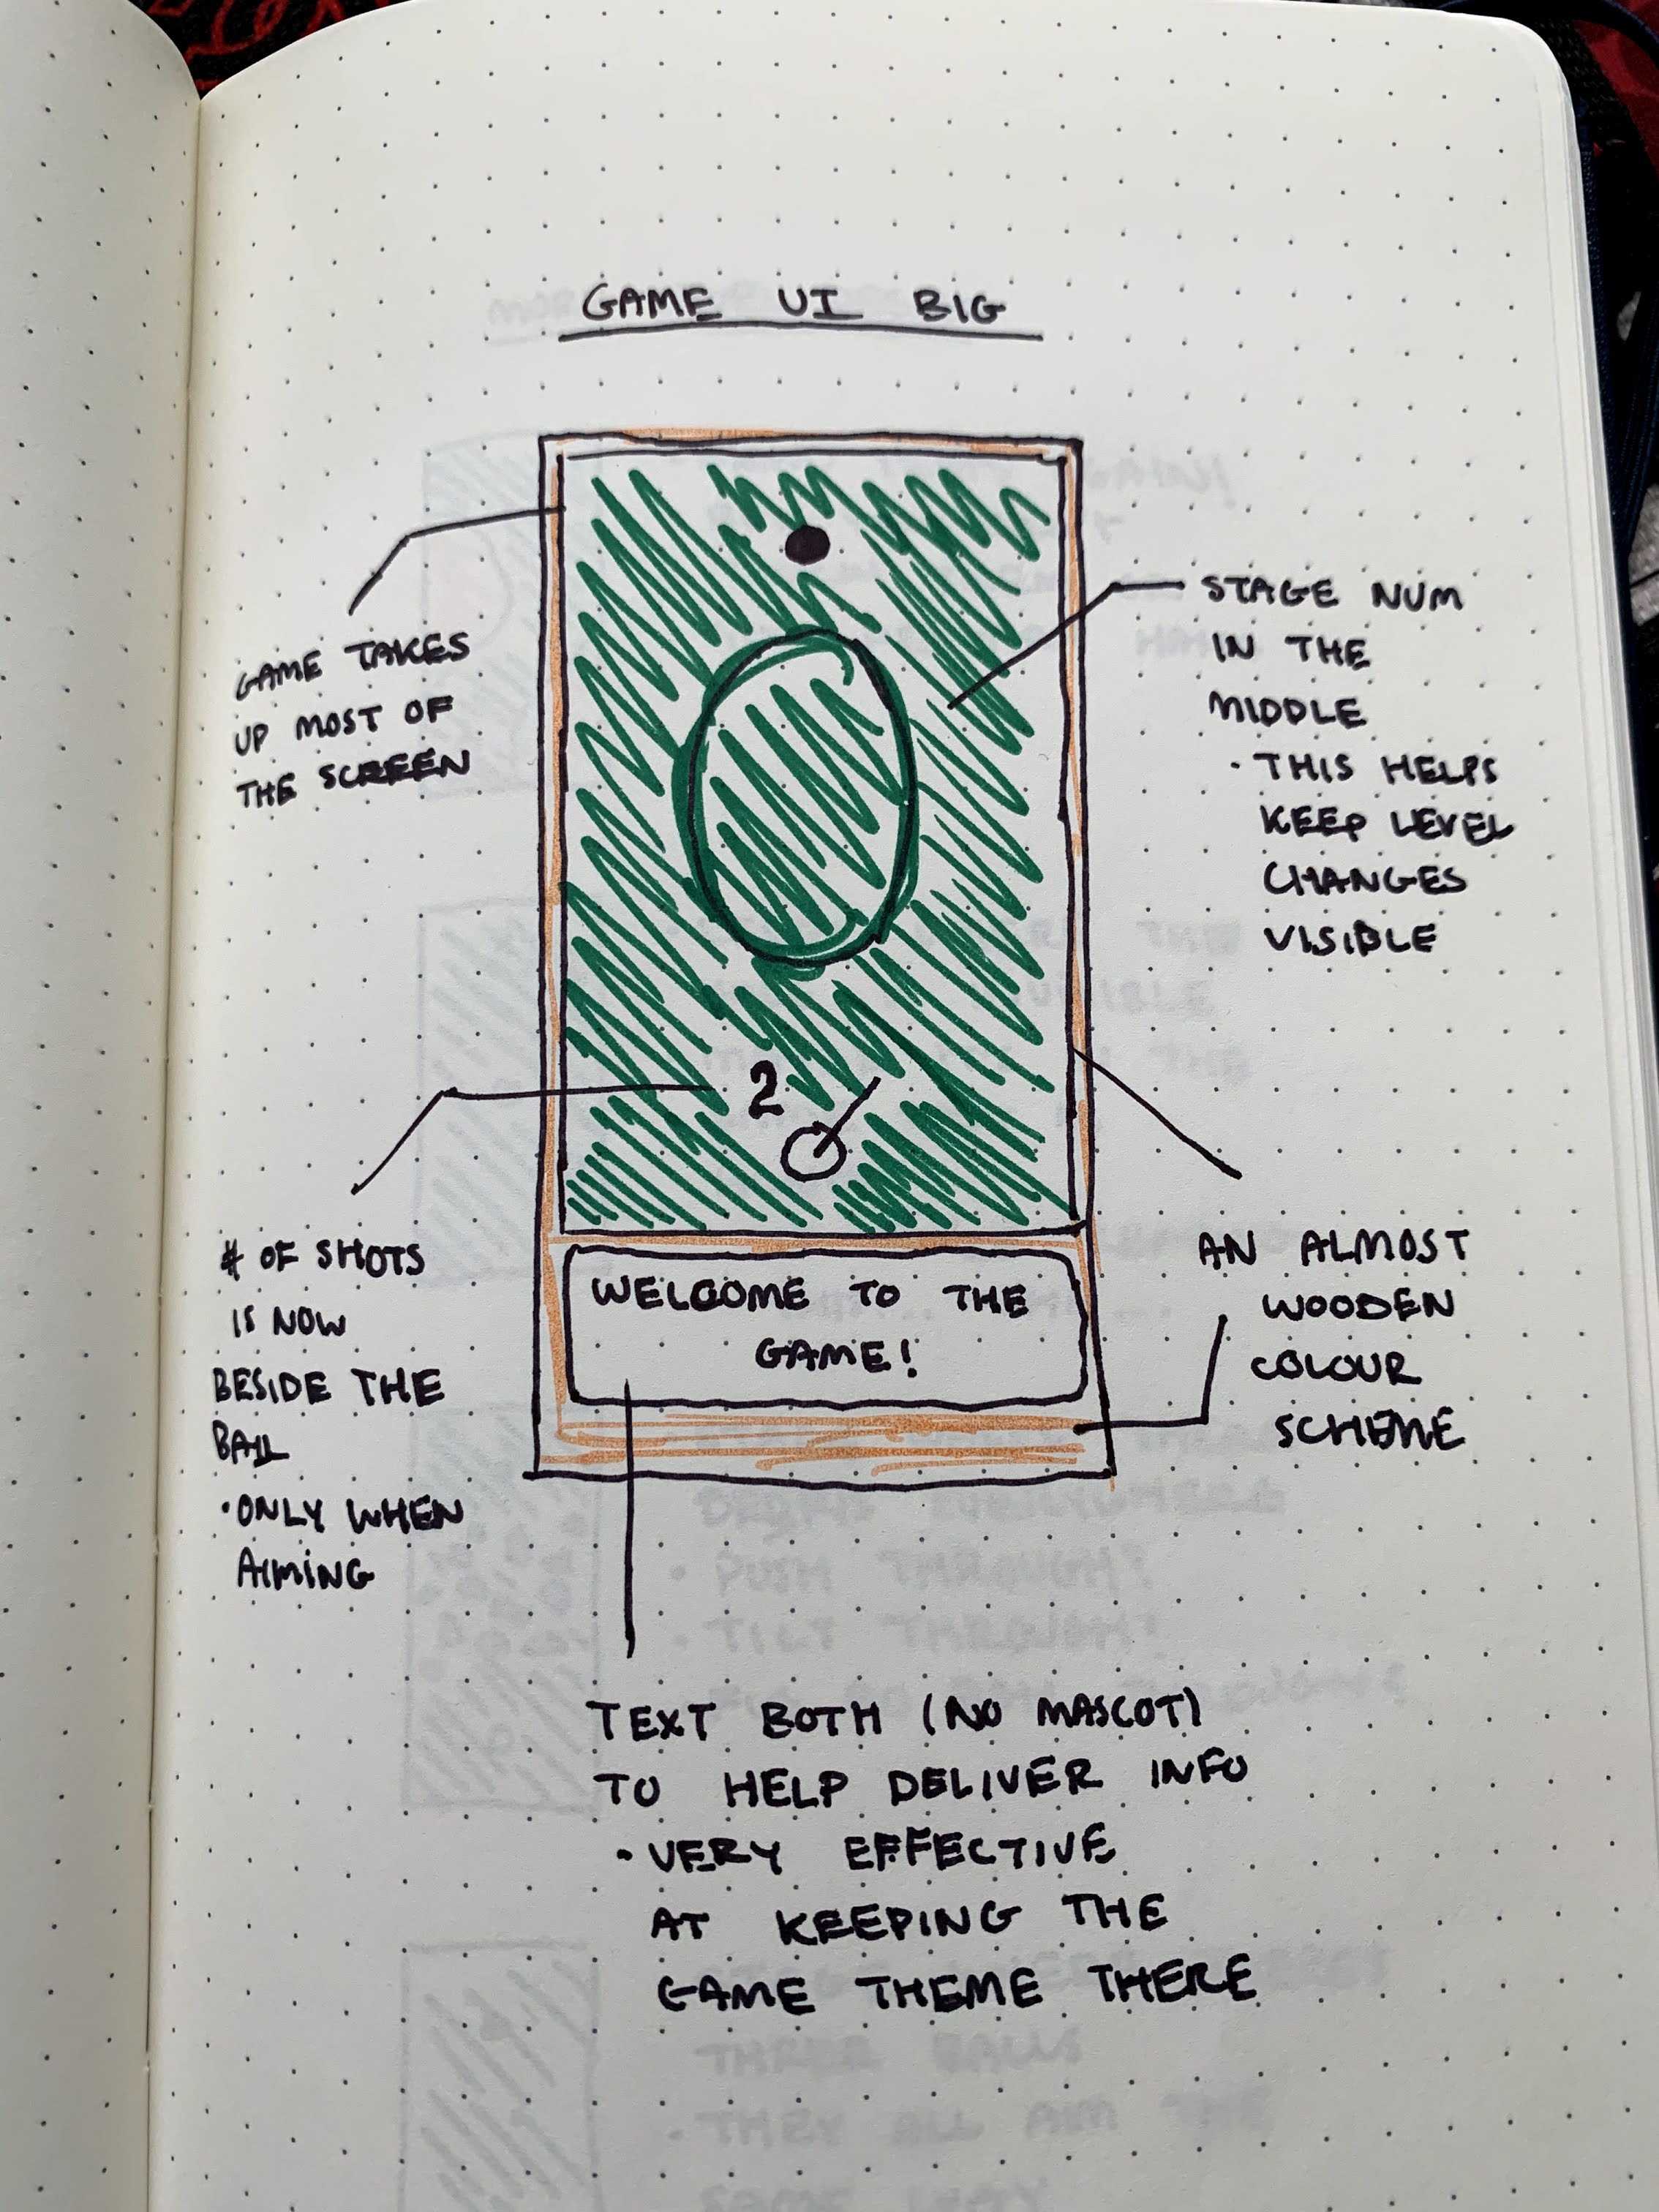 GAME UI BIG
GAME TAKES
UP MOST OF
THE SCREEN
STAGE NUM
IN THE
MIDDLE
· THIS HELPS
KEEP LEVEL
CHANGES
VISIBLE
2
# OF SHOTS
IS NOW
BESIDE THE
BALL
· ONLY WHEN
AIMING
WELCOME TO THE
GAME!
AN ALMOST
WOODEN
COLOUR
SCHEME
TEXT BOTH (NO MASCOT)
TO HELP DELIVER INFO
· VERY EFFECTIVE
AT KEEPING THE
GAME THEME THERE